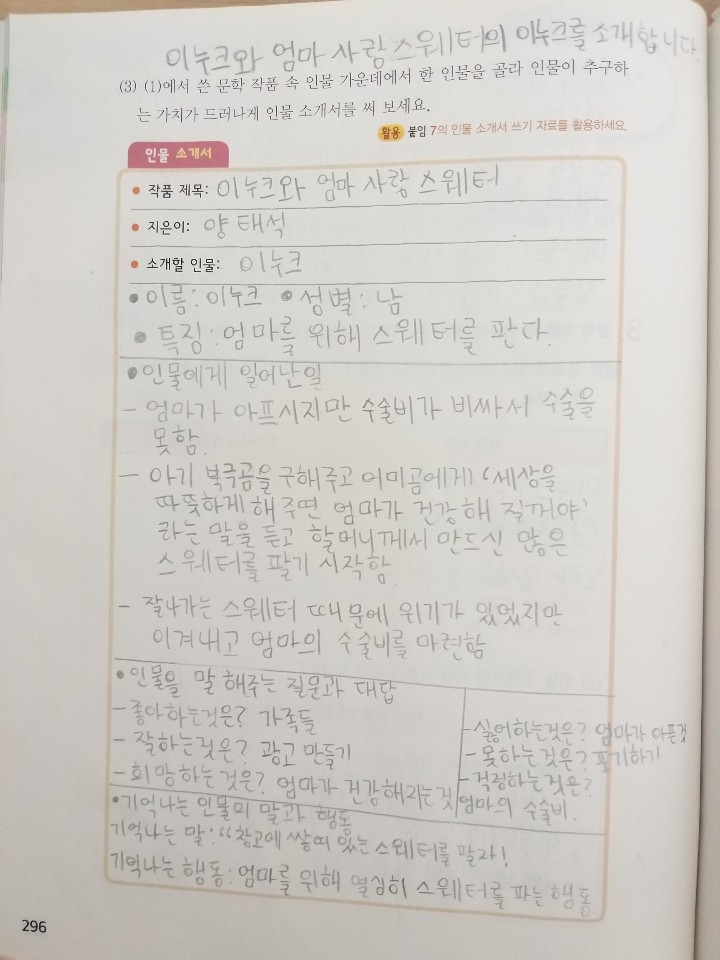 이누크와 엄마 사랑 스웨터의 이누크를 소개합니다.
(3) (1)에서 쓴 문학 작품 속 인물 가운데에서 한 인물을 골라 인물이 추구하
는 가치가 드러나게 인물 소개서를 써 보세요.
활용 붙임 7의 인물 소개서 쓰기 자료를 활용하세요.
인물 소개서
• 작품 제목: 이누크와 엄마 사랑 스웨터
• 지은이: 양태석
• 소개할 인물: 이누크
• 이름: 이누크 • 성별: 남
• 특징: 엄마를 위해 스웨터를 판다.
• 인물에게 일어난일
- 엄마가 아프시지만 수술비가 비싸서 수술을
못함.
- 아기 북극곰을 구해주고 어미곰에게 '세상을
따뜻하게 해 주면 엄마가 건강해 질꺼야'
라는 말을 듣고 할머니께서 만드신 많은
스웨터를 팔기 시작함
- 잘나가는 스웨터 때문에 위기가 있었지만
이겨내고 엄마의 수술비를 마련함
• 인물을 말 해주는 질문과 대답
- 좋아하는것은? 가족들
- 잘하는것은? 광고 만들기
- 희망하는것은? 엄마가 건강해지는것
- 싫어하는것은? 엄마가 아픈것
- 못하는것은? 포기하기
- 걱정하는것은?
엄마의 수술비.
• 기억나는 인물의 말과 행동
기억나는 말: "창고에 쌓여 있는 스웨터를 팔자!
기억나는 행동: 엄마를 위해 열심히 스웨터를 파는 행동
296